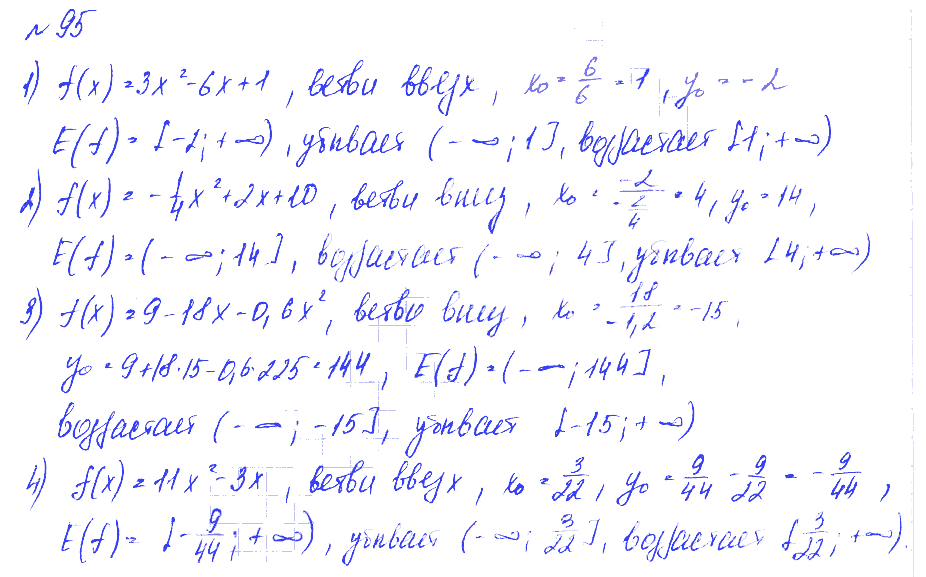 № 95
1) f(x) = 3x² - 6x + 1, ветви вверх, x₀ = 6/6 = 1, y₀ = -2
E(f) = [-2; +∞), убывает (-∞; 1], возрастает [1; +∞)
2) f(x) = -1/4 x² + 2x + 10, ветви вниз, x₀ = -2/(-2/4) = 4, y₀ = 14,
E(f) = (-∞; 14], возрастает (-∞; 4], убывает [4; +∞)
3) f(x) = 9 - 18x - 0,6x², ветви вниз, x₀ = 18/-1,2 = -15,
y₀ = 9 + 18·15 - 0,6·225 = 144, E(f) = (-∞; 144],
возрастает (-∞; -15], убывает [-15; +∞)
4) f(x) = 11x² - 3x, ветви вверх, x₀ = 3/22, y₀ = 9/44 - 9/22 = -9/44,
E(f) = [-9/44; +∞), убывает (-∞; 3/22], возрастает [3/22; +∞).